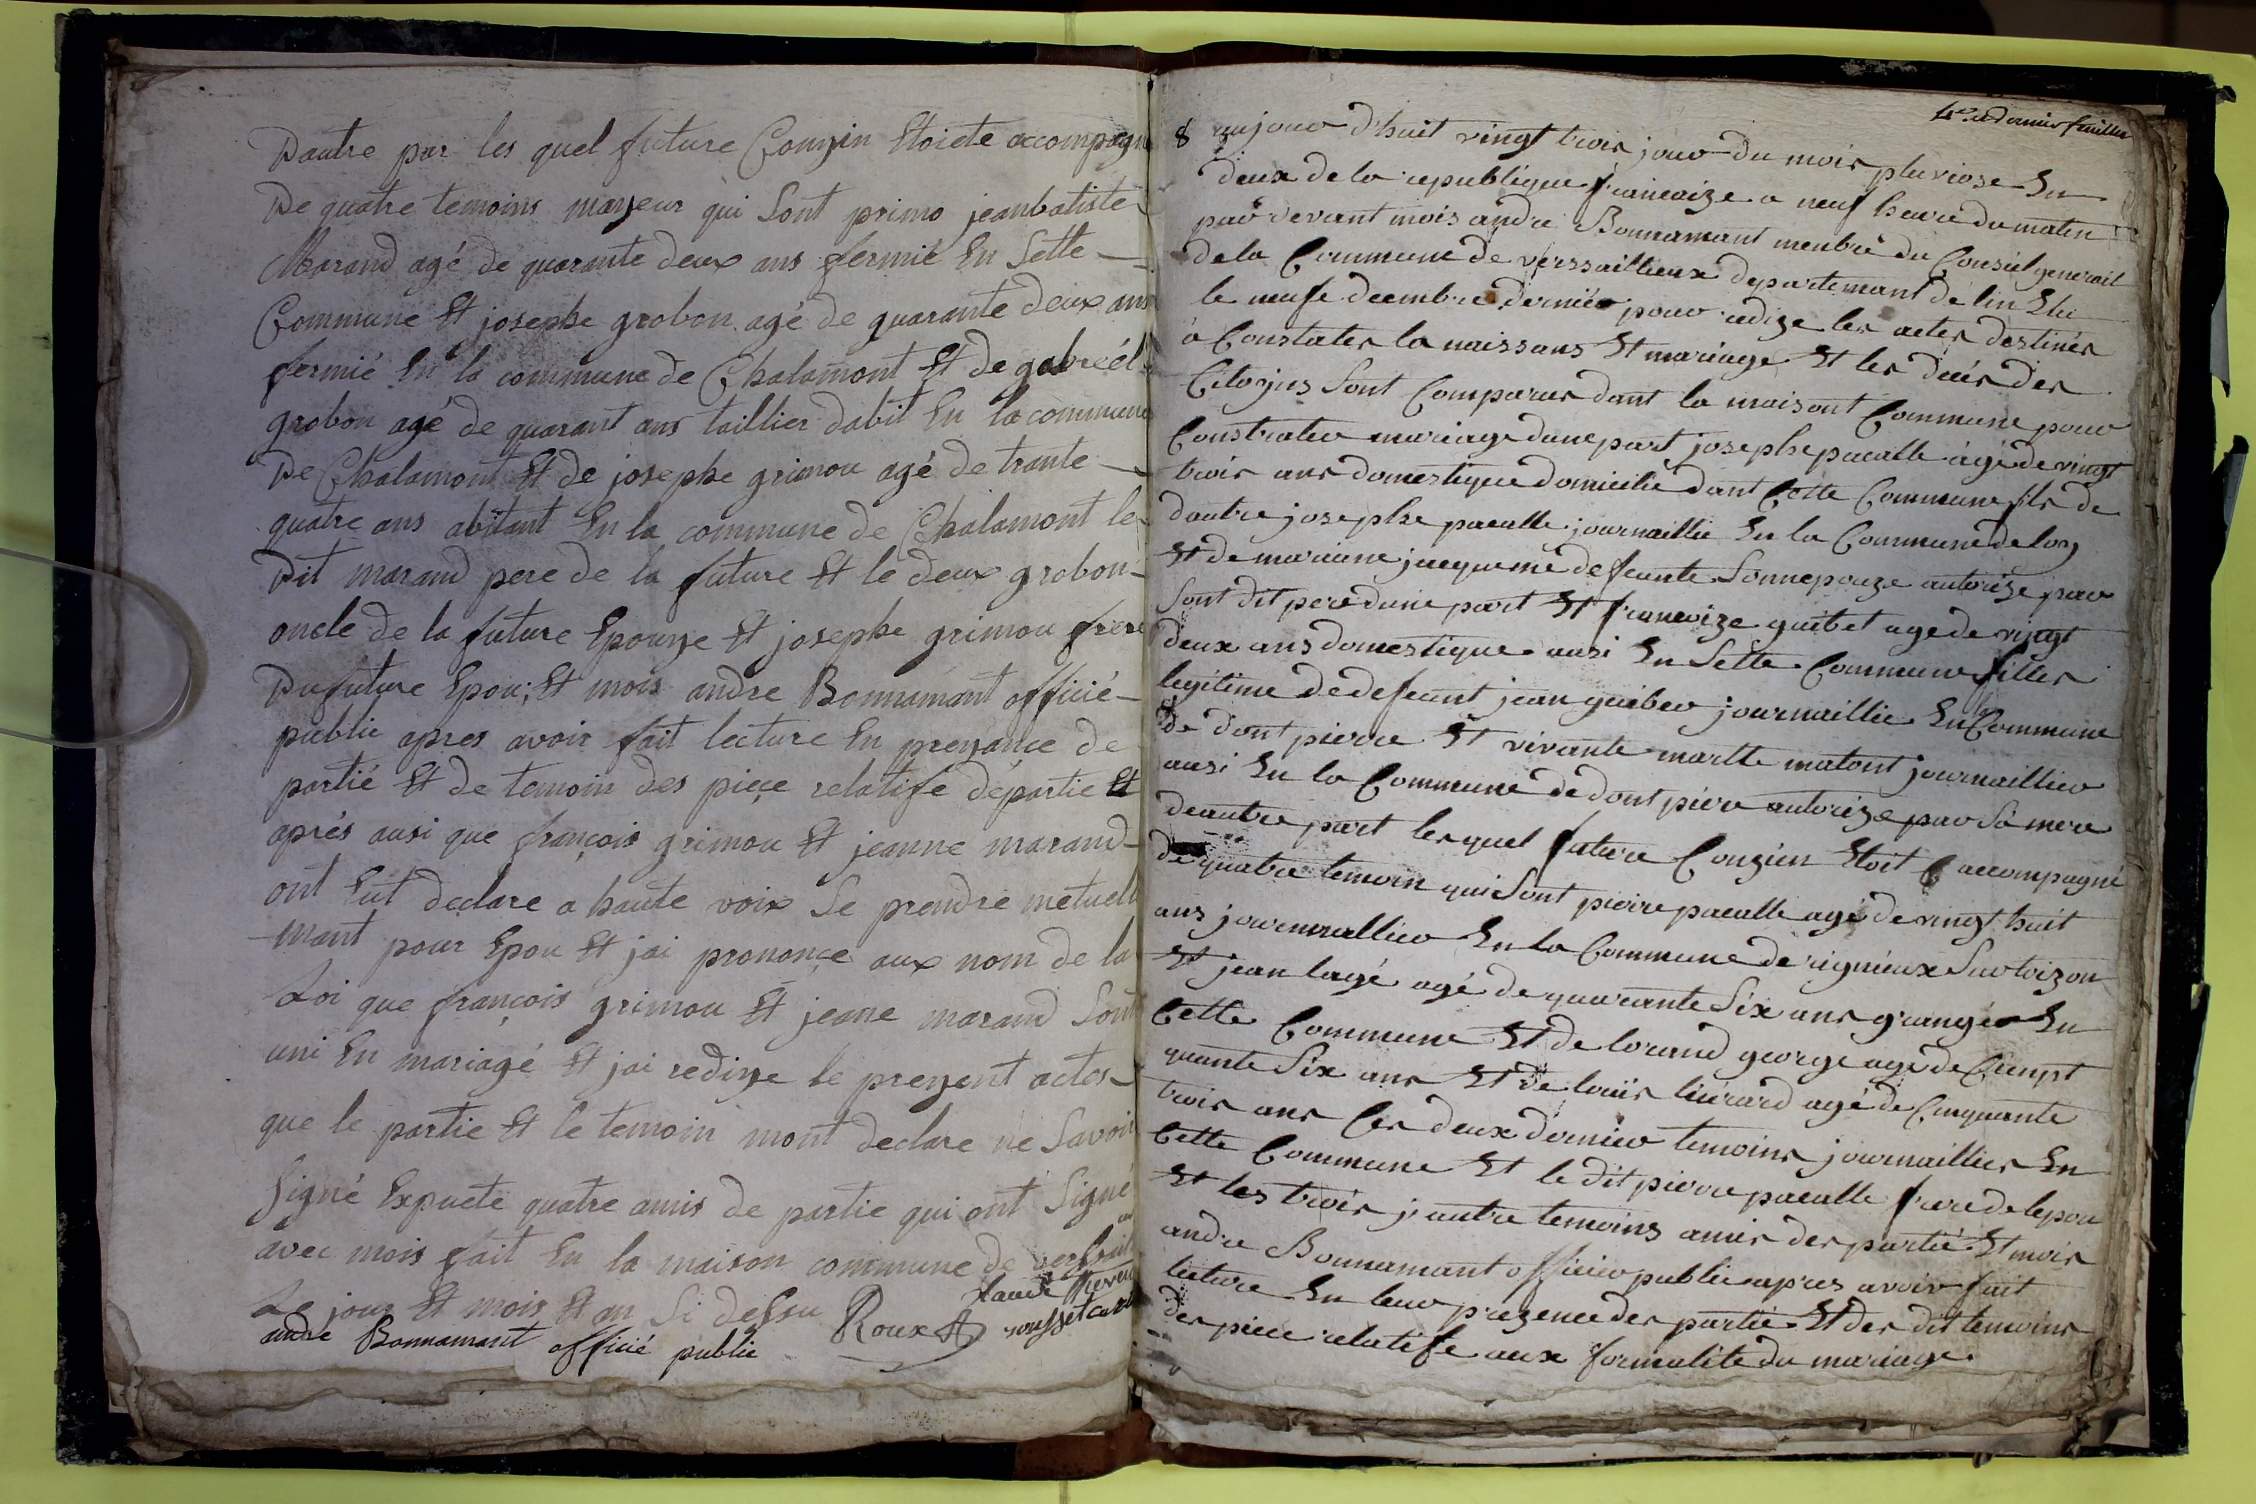 Dautre par les quel future Conyin Etoicte accompagn
De quatre temoins mayeur qui Sont primo jeanbatiste
Marand agé de quarante deux ans fermié En Sette
Commune Et josephe grobon agé de quarante deux ans
fermié En la commune de Chalamont Et de gabreél
grobon agé de quarant ans taillier dabit En la commune
De Chalamont Et de josephe grimou agé de trante
quatre ans abitant En la commune de Chalamont le
Dit marand pere de la future Et le deux grobon
oncle de la future Epouye Et josephe grimou frere
Du future Epou; Et mois andre Bonnamant officié
public apres avoir fait lecture En preyançe de
partié Et de temoin des pieçe relatife departie Et
aprés ausi que françois grimou Et jeanne marand
ont Eut declare a haute voix Se prendre metuell
mant pour Epou Et jai prononçe aux nom de la
Loi que françois grimou Et jeane marand Sont
uni En mariagé Et jai rediye le preyent actes
que le partie Et le temoin mont declare ne Savoir
Signé Expuete quatre amis de partie qui ont Signé
avec mois fait En la maison commune de
Le jour Et mois Et an Si dessu Roux
andre Bonnamant officié public
4e et dernier feuillet
8 aujour d'huit vingt trois jour du mois pluvioze En
deux de la republique francaize a neuf heure du matin
par devant mois andre Bonnamant menbre du Consiel generail
de la Commune de verssaillieux departemant de lin Elu
le neufe decembre dernier pour redize les actes destinés
á Constater la naissans Et mariage Et les decés des
Citoyns Sont Comparus dant la maisont Commune pour
Constrater mariage dune part josephe pacalle ágé de vingt
trois ans domestique domicilié dant Cette Commune fils de
dautre josephe pacalle journaillie En la Commune de loy
Et de mariane jacqueme defeunte Sonnepouze autorize par
Sont dit pere dune part Et francoize guibet age de vingt
deux ans domestique ausi En Sette Commune filles
legitime de defeunt jean guibeo journaillie En Commune
de dont pierre Et vivante martte matont journaillieo
ausi En la Commune de dont piere autorize par Sa mere
deautre part les quel future Conzien Etoit accompagné
de quatre temoin qui Sont pierre pacalle agé de vingt huit
ans journallieo En la Commune de rignieux Surtoizon
Et jean lagé agé de quarante Six ans grangér En
Cette Commune Et de lorand george age de Cinqt
quante Six ans Et de louis liérard agé de Cinquante
trois ans Ces deux dernieo temoins journaillier En
Cette Commune Et le dit pierre pacalle frere de lepou
Et les trois j'autre temoins amis des partié Et mois
andre Bonnamant officieo public apres avoir fait
lecture En leur prezence des partié Et des dit temoins
des piece relatife aux formalite du mariage